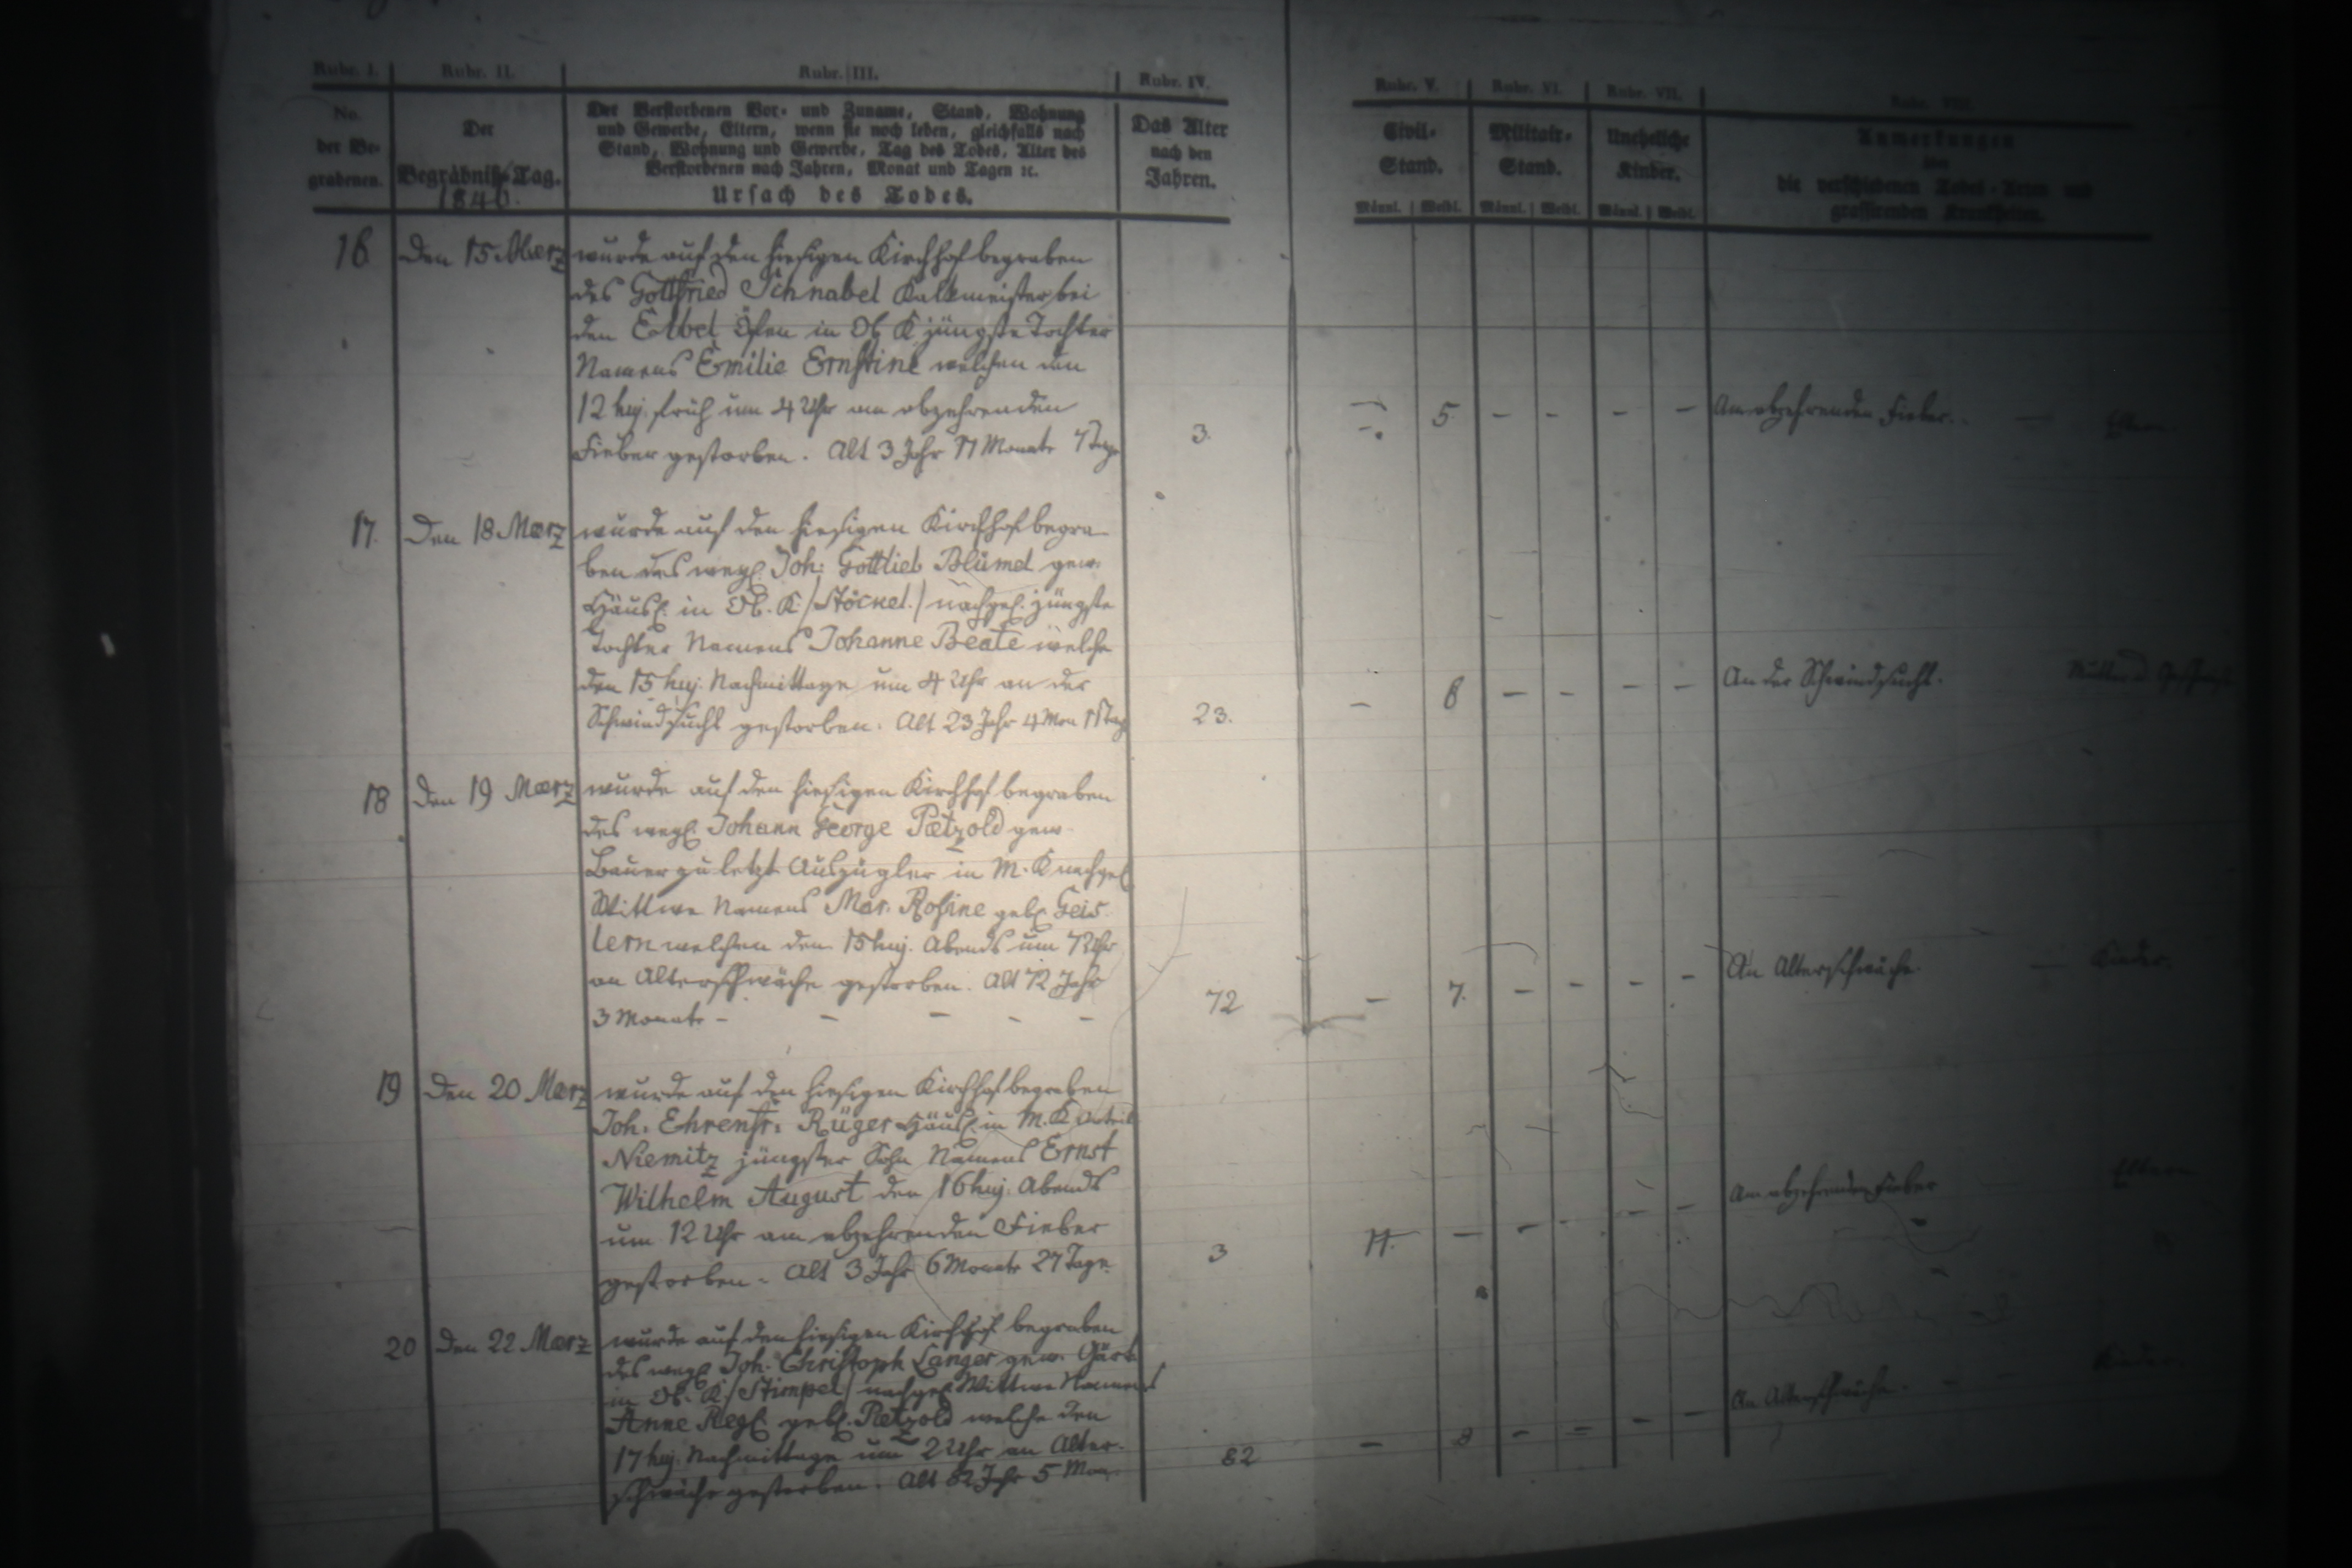 Rubr. I. Rubr. II. Rubr. III. Rubr. IV. Rubr. V. Rubr. VI. Rubr. VII. Rubr. VIII.
No. der Begrabenen.
Der Begräbniß-Tag.
1846.
Der Verstorbenen Vor- und Zuname, Stand, Wohnung
und Gewerbe, Eltern, wenn sie noch leben, gleichfalls nach
Stand, Wohnung und Gewerbe, Tag des Todes, Alter des
Verstorbenen nach Jahren, Monat und Tagen ꝛc.
Ursach des Todes.
Das Alter
nach den
Jahren.
Civil-
Stand.
Militair-
Stand.
Uneheliche
Kinder.
Anmerkungen
über
die verschiedenen Todes-Arten und
grassirenden Krankheiten.
Männl. Weibl. Männl. Weibl. Männl. Weibl.
16 Den 15 Maerz wurde auf den hiesigen Kirchhof begraben
des Gottfried Schnabel Kalkmeister bei
den Öfen in Ob. K jüngste Tochter
Namens Emilie Ernstine welchen den
12 huj. früh um 4 Uhr am abzehrenden
Fieber gestorben. Alt 3 Jahr 11 Monate 7 Tage
3. – 5. – – – – Am abzehrenden Fieber. – Eltern.
17. Den 18 Maerz wurde auf den hiesigen Kirchhof begra-
ben des weyl. Joh: Gottlieb Blümel gew.
Häusl. in Ob. K. /Stöckel./ nachgel. jüngste
Tochter Namens Johanne Beate welche
den 15 huj. Nachmittage um 4 Uhr an der
Schwindsucht gestorben. Alt 23 Jahr 4 Mon Tag
23. – 6 – – – – An der Schwindsucht. Mutter
18 Den 19 Maerz wurde auf den hiesigen Kirchhof begraben
des weyl. Johann George Pætzold gew.
Bauer zuletzt Auszügler in M. K nachgel.
Wittwe Namens Mar. Rosine geb. Geis-
lern welchen den 15 huj. Abends um 7 Uhr
an Alterschwäche gestorben. Alt 72 Jahr
3 Monate – – – – –
72 – 7. – – – – An Alterschwäche. – Kinder.
19 Den 20 Maerz wurde auf den hiesigen Kirchhof begraben
Joh. Ehrenfr: Rüger Häusl. in M. K
Niemitz jüngster Sohn Namens Ernst
Wilhelm August den 16 huj. Abends
um 12 Uhr am abzehrenden Fieber
gestorben. Alt 3 Jahr 6 Monate 27 Tage
3 11. – – – – – Am abzehrenden Fieber – Eltern
20 Den 22 Maerz wurde auf den hiesigen Kirchhof begraben
des weyl. Joh. Christoph Langer gew. Gärt.
in Ob. K /Stimpel/ nachgel. Wittwe Namens
Anne Regl. geb. Pætzold welche den
17 huj. Nachmittage um 2 Uhr an Alter-
schwäche gestorben. Alt 82 Jahr 5 Mon.
82 – 8 – – – – An Alterschwäche. – Kinder.